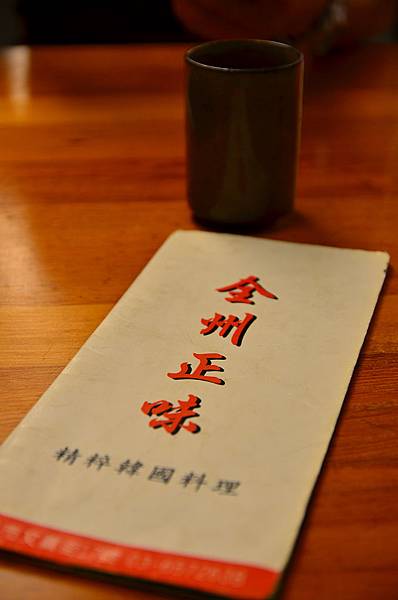 全州正味
精粹韓國料理